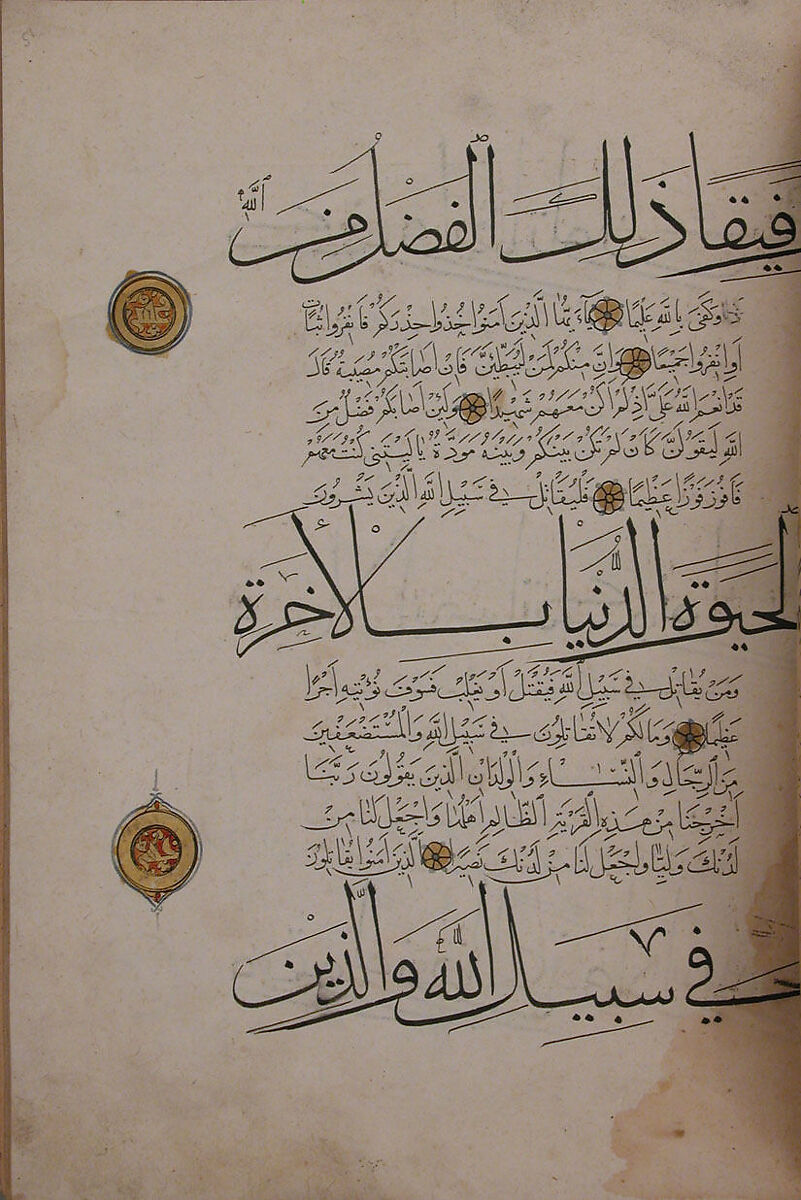 فيقا ذلك الفضل من الله
وَكَفَى بِاللَّهِ عَلِيمًا يَاءَيُّهَا الَّذِينَ آمَنُوا خُذُوا حِذْرَكُمْ فَانْفِرُوا ثُبَاتٍ
أَوِ انْفِرُوا جَمِيعًا وَإِنَّ مِنْكُمْ لَمَنْ لَيُبَطِّئَنَّ فَإِنْ أَصَابَتْكُمْ مُصِيبَةٌ قَالَ
قَدْ أَنْعَمَ اللَّهُ عَلَيَّ إِذْ لَمْ أَكُنْ مَعَهُمْ شَهِيدًا وَلَئِنْ أَصَابَكُمْ فَضْلٌ مِنَ
اللَّهِ لَيَقُولَنَّ كَأَنْ لَمْ تَكُنْ بَيْنَكُمْ وَبَيْنَهُ مَوَدَّةٌ يَا لَيْتَنِي كُنْتُ مَعَهُمْ
فَأَفُوزَ فَوْزًا عَظِيمًا فَلْيُقَاتِلْ فِي سَبِيلِ اللَّهِ الَّذِينَ يَشْرُونَ
الحيوة الدنيا بالأخرة
وَمَنْ يُقَاتِلْ فِي سَبِيلِ اللَّهِ فَيُقْتَلْ أَوْ يَغْلِبْ فَسَوْفَ نُؤْتِيهِ أَجْرًا
عَظِيمًا وَمَا لَكُمْ لَا تُقَاتِلُونَ فِي سَبِيلِ اللَّهِ وَالْمُسْتَضْعَفِينَ
مِنَ الرِّجَالِ وَالنِّسَاءِ وَالْوِلْدَانِ الَّذِينَ يَقُولُونَ رَبَّنَا
أَخْرِجْنَا مِنْ هَذِهِ الْقَرْيَةِ الظَّالِمِ أَهْلُهَا وَاجْعَلْ لَنَا مِنْ
لَدُنْكَ وَلِيًّا وَاجْعَلْ لَنَا مِنْ لَدُنْكَ نَصِيرًا الَّذِينَ آمَنُوا يُقَاتِلُونَ
في سبيل الله والذين